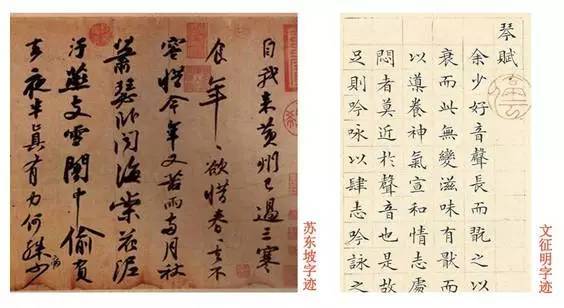 自我来黃州已過三寒
食年〻欲惜春〻去不
容惜今年又苦雨兩月秋
蕭瑟卧聞海棠花泥
汙燕支雪闇中偷負
去夜半真有力何殊少
苏东坡字迹
琴賦
余少好音聲長而翫之以
衰而此無變滋味有猒而
以導養神氣宣和情志處
悶者莫近於聲音也是故
足則吟詠以肆志吟詠之
文征明字迹